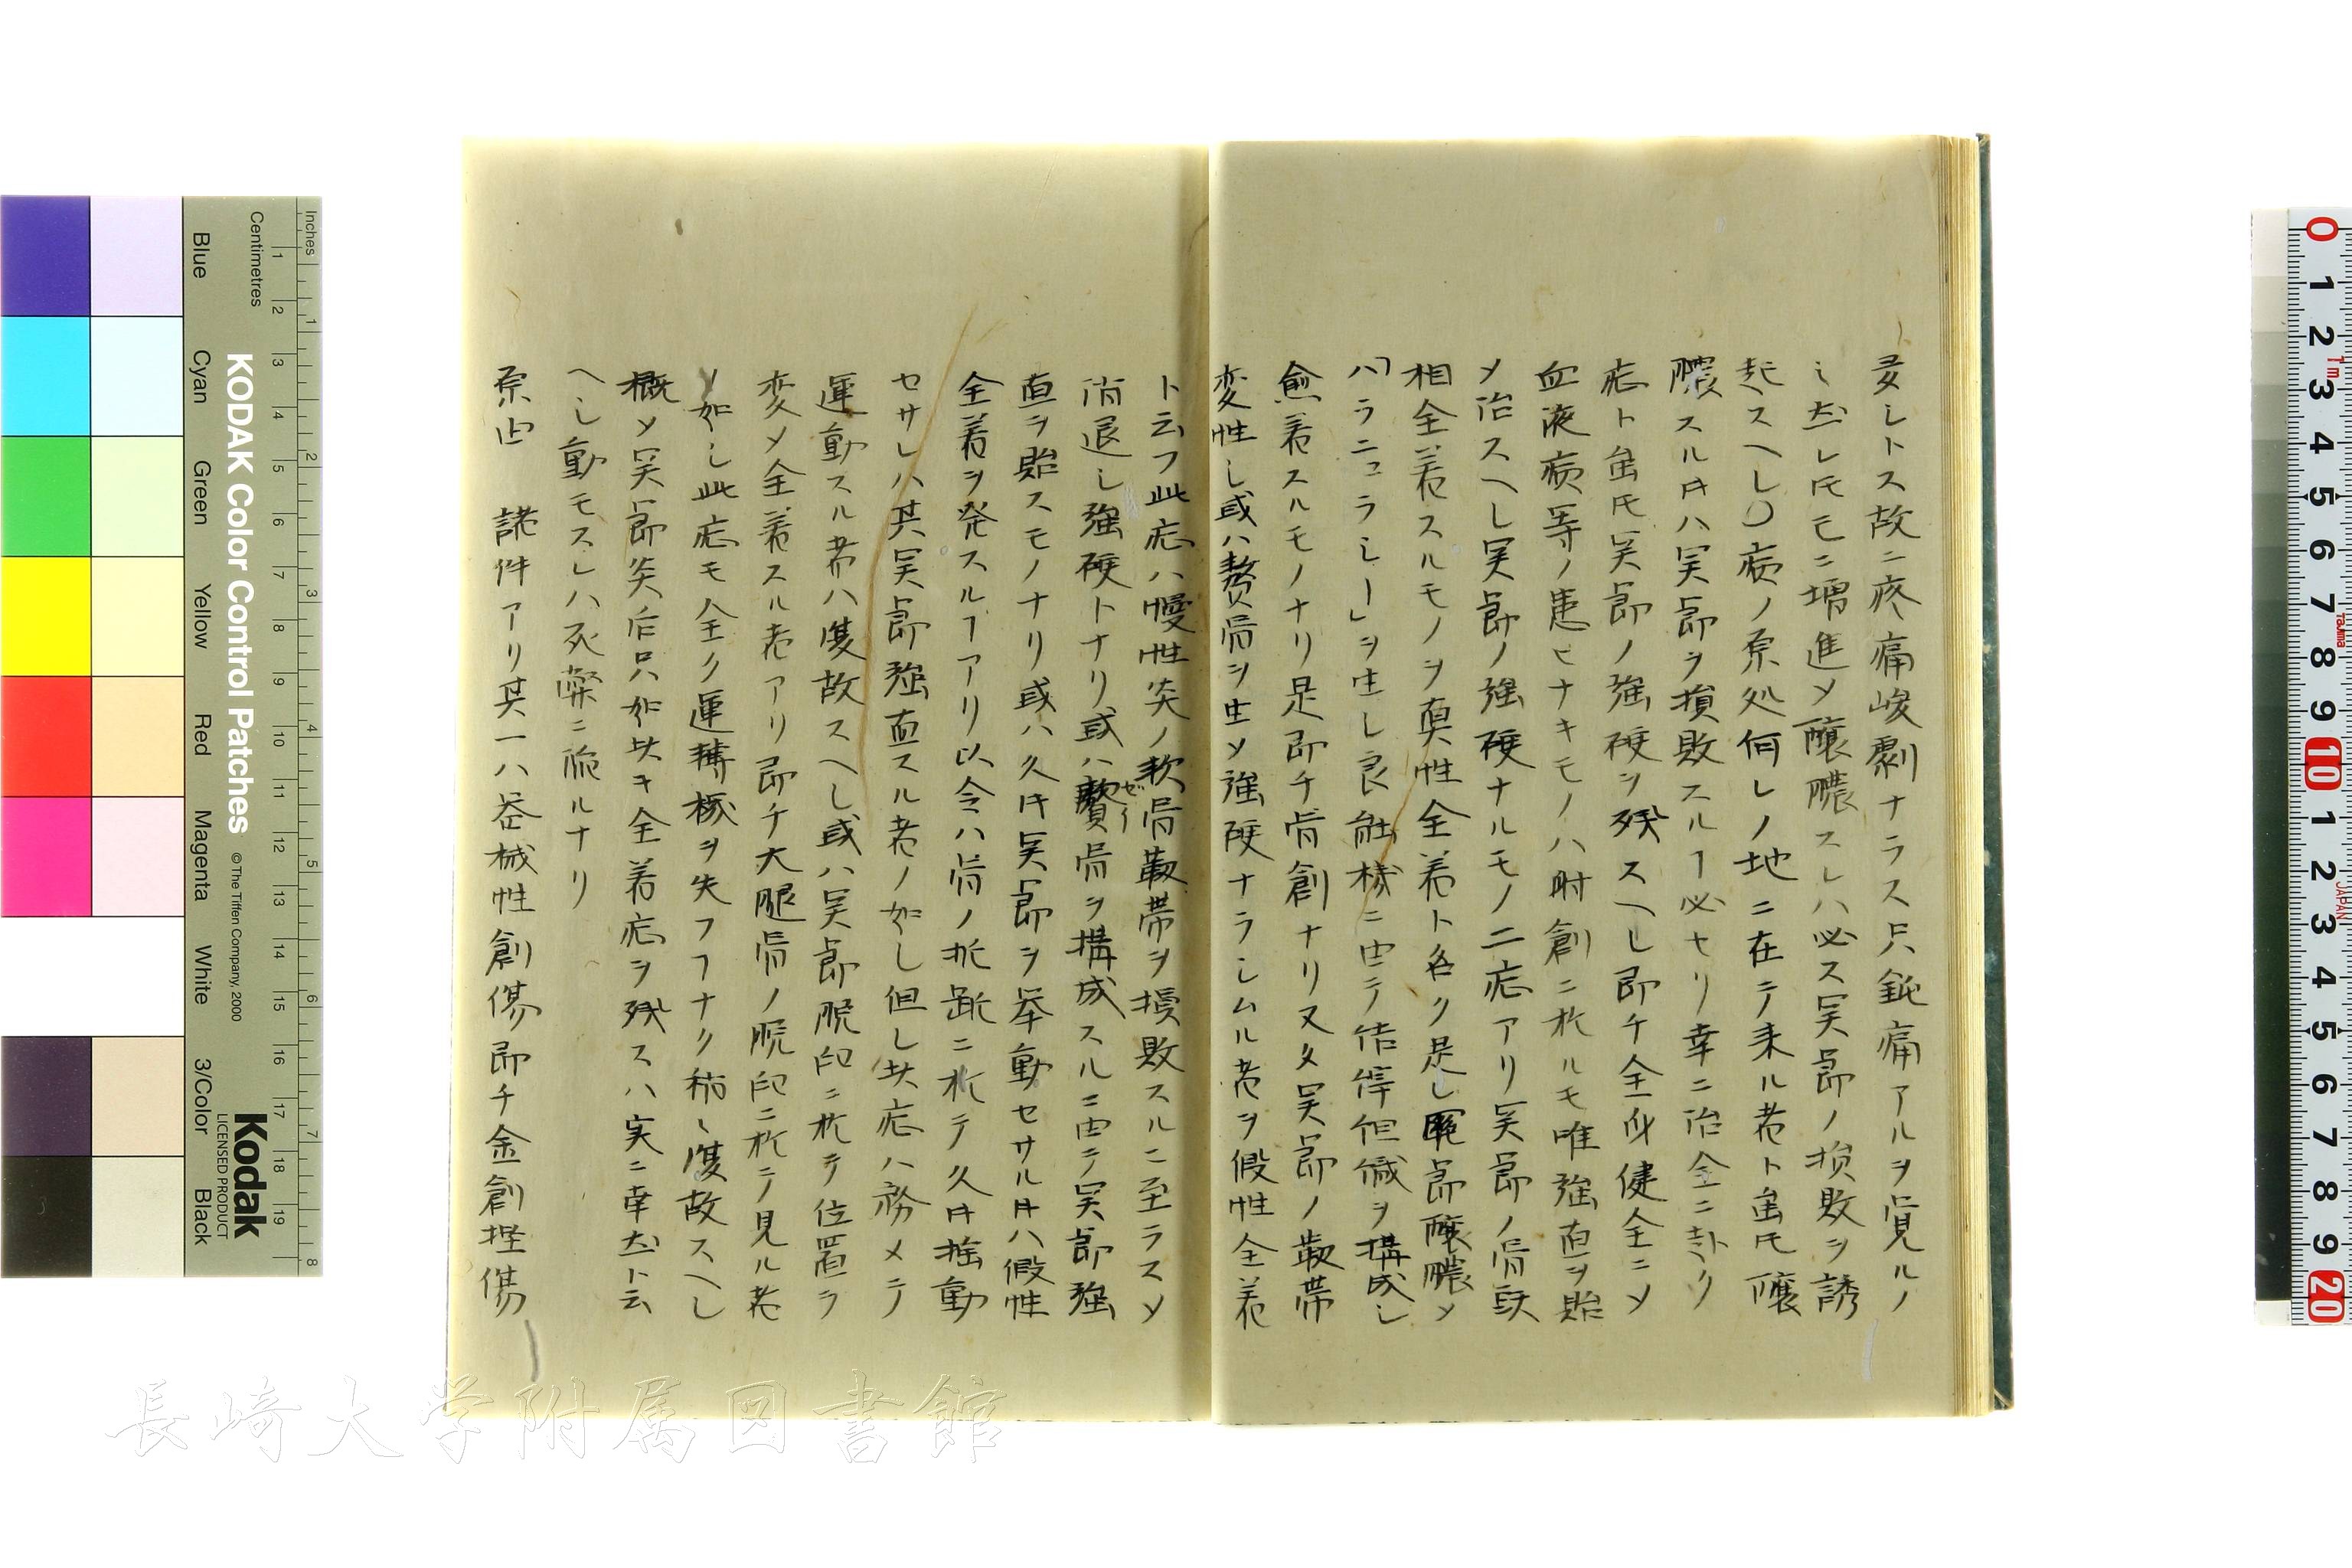 トス故ニ疼痛峻劇ナラス只鈍痛アルヲ覚ルノ
ミ然レ𪜈モシ増進〆醸膿スレハ必ス関節ノ損敗ヲ誘
起スヘし〇病ノ原処何レノ地ニ在テ来ル者ト虽𪜈醸
膿スル𪜈ハ関節ヲ損敗スルヿ必セリ幸ニ治全ニ赴ク
症ト虽𪜈関節ノ強硬ヲ残スヘし即チ全身健全ニ〆
血液病等ノ患ヒナキモノハ財創ニ於ルモ唯強直ヲ貽
〆治スヘし関節ノ強硬ナルモノ二症アリ関節ノ骨頭
相全着スルモノヲ真性全着ト名ク是し関節醸膿〆
「ハラニュラシー」ヲ生し良能機ニ由テ結締組織ヲ構成し
愈着スルモノナリ是即チ骨創ナリ又タ関節ノ靱帯
変性し或ハ贅骨ヲ生〆強硬ナラシムル者ヲ假性全着
ト云フ此症ハ慢性炎ノ軟骨靱帯ヲ損敗スルニ至ラス〆
消退し強硬トナリ或ハ贅骨ヲ構成スルニ由テ関節強
ゼイ
直ヲ貽スモノナリ或ハ久𪜈関節ヲ挙動セサル𪜈ハ假性
全着ヲ発スルヿアリ以令ハ骨ノ折断ニ於テ久𪜈揺動
セサレハ其関節強直スル者ノ如し但し此症ハ務メテ
運動スル者ハ復故スヘし或ハ関節脱臼ニ於テ位置ヲ
変〆全着スル者アリ即チ大腿骨ノ脱臼ニ於テ見ル者
ノ如し此症モ全ク運轉機ヲ失フヿナク稍〻復故スヘし
概〆関節炎后只如此キ全着症ヲ残スハ実ニ幸甚ト云
ヘし動モスレハ死弊ニ陥ルナリ
原由 諸件アリ其一ハ器械性創傷即チ金創挫傷
Inches
Centimetres
Blue
Cyan
Green
Yellow
Red
Magenta
White
3/Color
Black
KODAK Color Control Patches
© The Tiffen Company, 2000
Kodak
LICENSED PRODUCT
長崎大学附属図書館